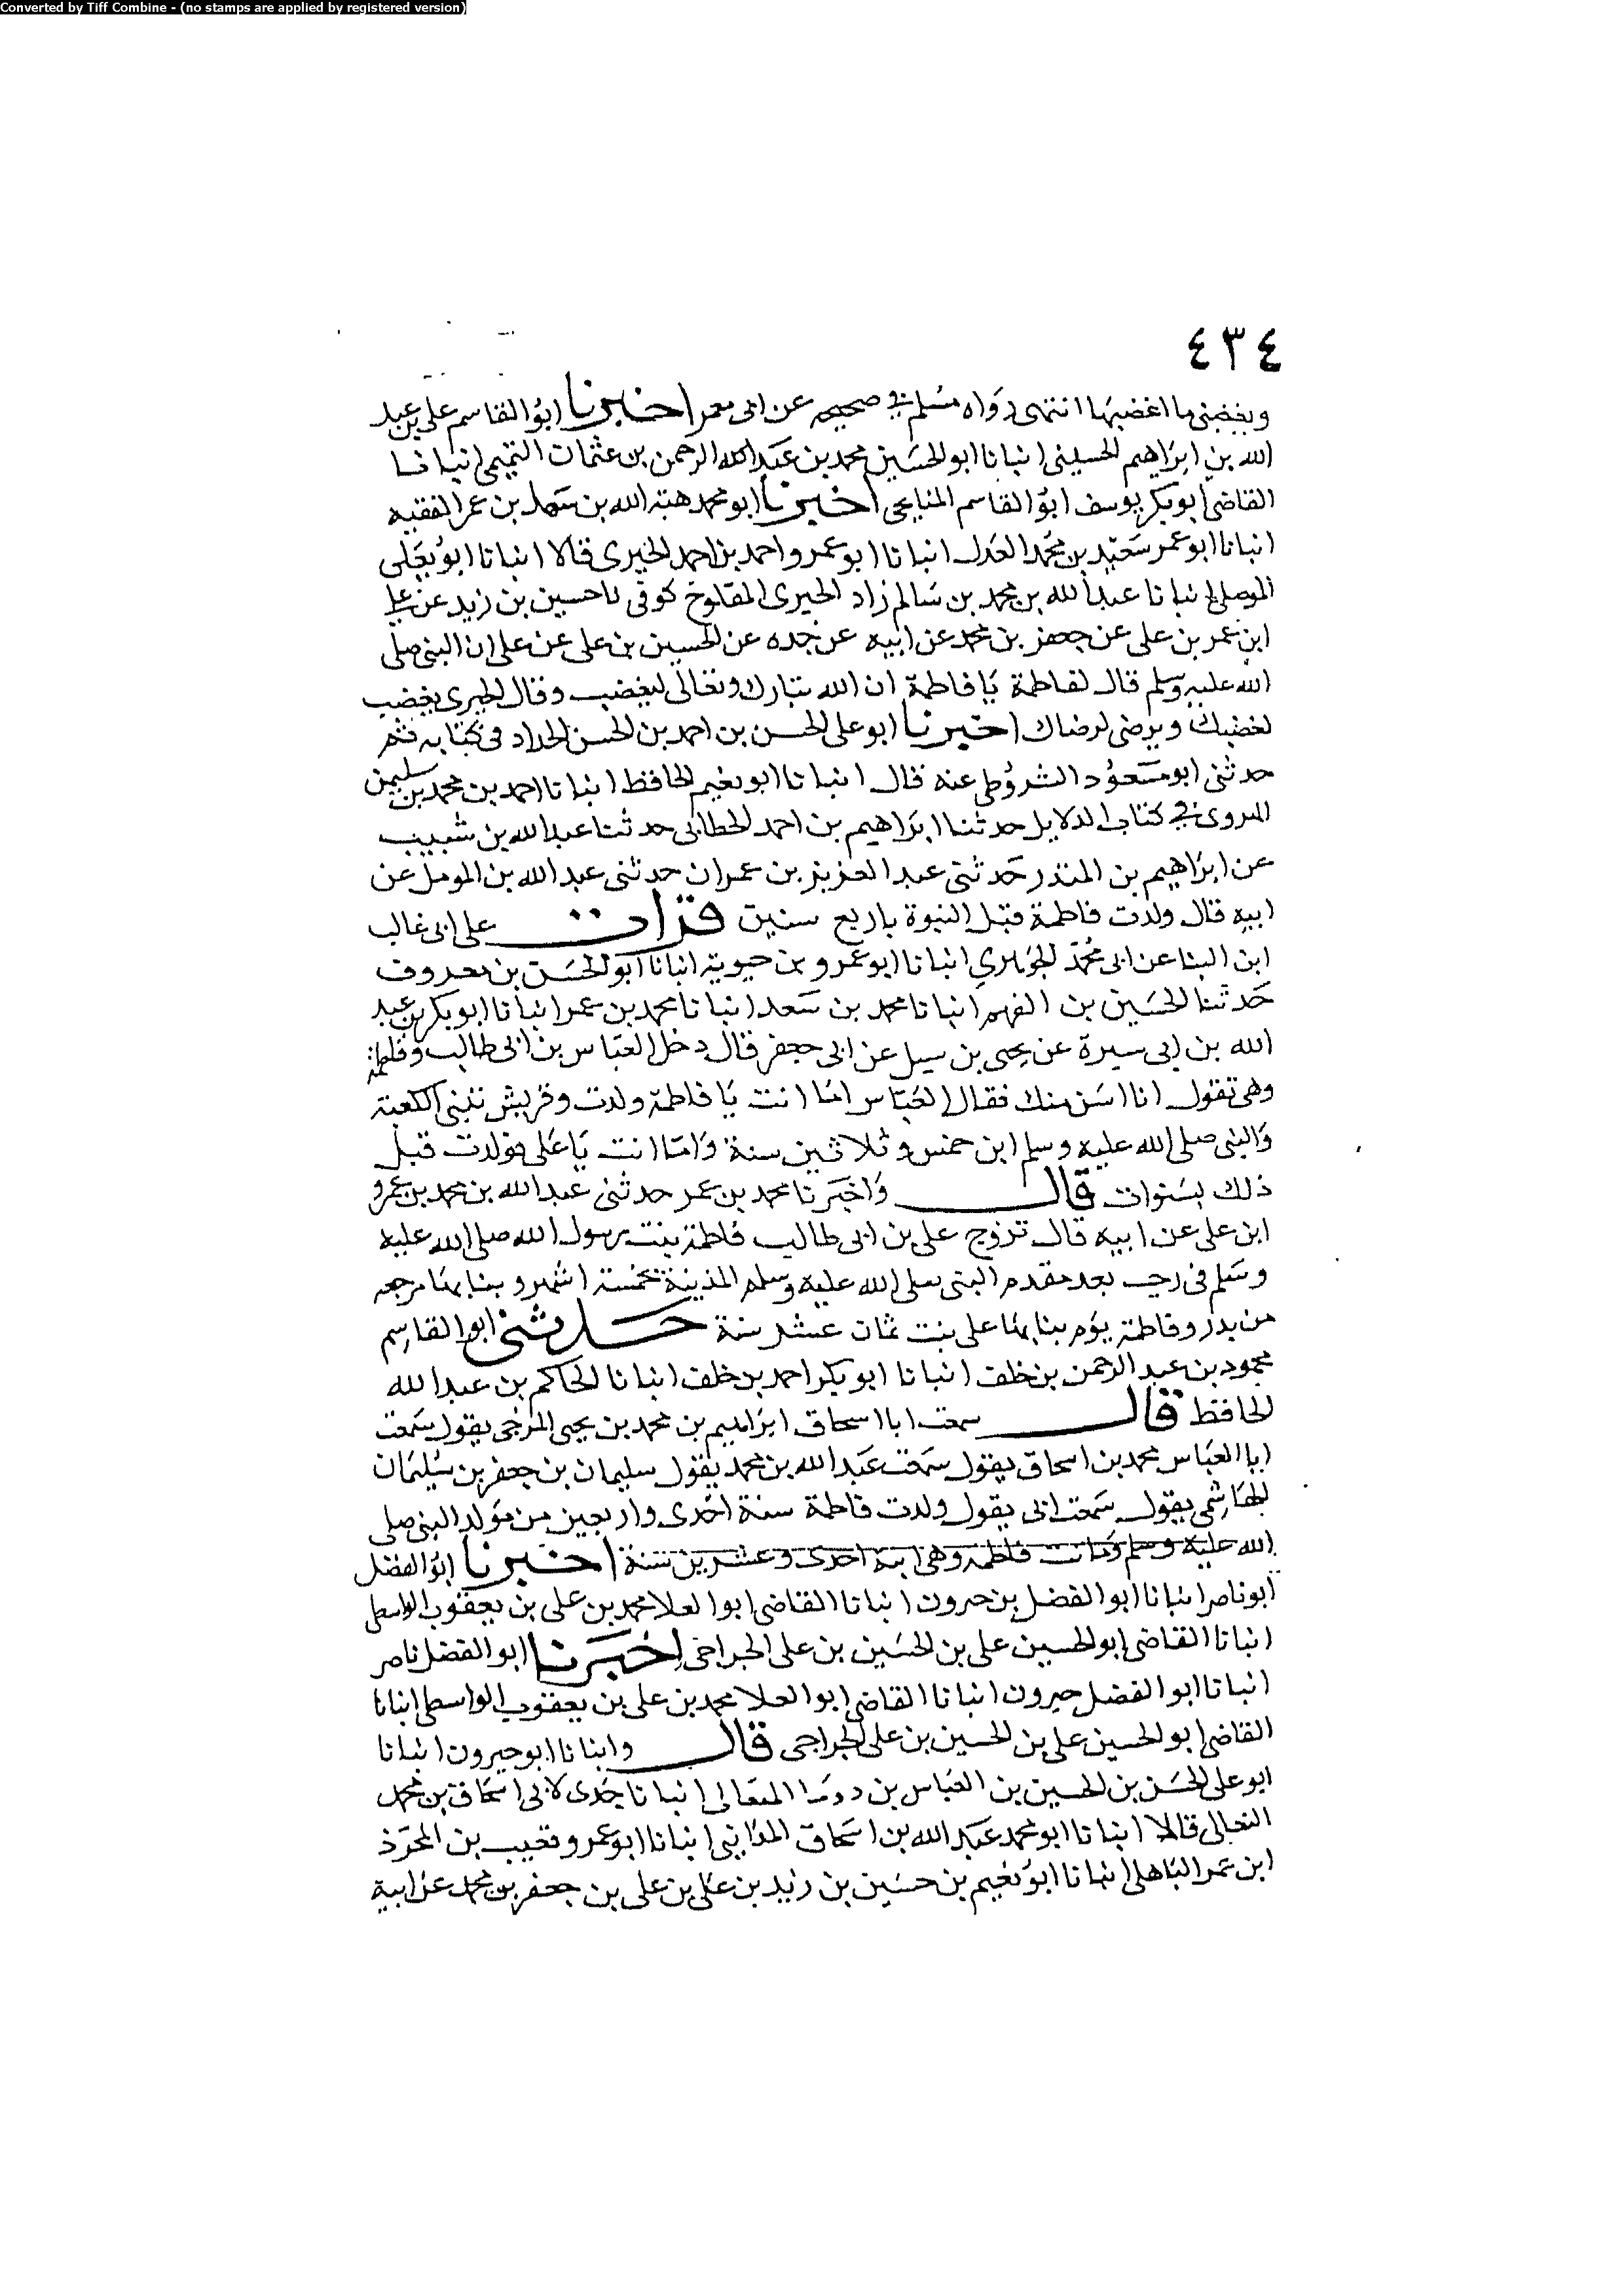 Converted by Tiff Combine - (no stamps are applied by registered version)
٤٣٤
ويغضبني ما اغضبها انتهى رواه مسلم في صحيحه عن ابي معمر اخبرنا ابو القاسم علي بن عبد
الله بن ابراهيم الحسيني انبانا ابو الحسين محمد بن عبد الله الرحمن بن عثمان التميمي انبانا
القاضي ابو بكر يوسف ابو القاسم المنايحي اخبرنا ابو محمد هبة الله بن سهل بن عمر الفقيه
انبانا ابو عمر سعيد بن محمد العدل انبانا ابو عمرو احمد بن احمد الحيرى قالا انبانا ابو يعلى
الموصلي انبانا عبد الله بن محمد بن سالم زاد الحيرى المفلوج كوفي نا حسين بن زيد عن علي
ابن عمر بن على عن جعفر بن محمد عن ابيه عن جده عن الحسين بن على عن على ان النبي صلى
الله عليه وسلم قال لفاطمة يا فاطمة ان الله تبارك وتعالى ليغضب وقال الحيرى يغضب
لغضبك ويرضى لرضاك اخبرنا ابو على الحسن بن احمد بن الحسن الحداد في كتابه ثم
حدثني ابو مسعود الشروطي عنه قال انبانا ابو نعيم الحافظ انبانا احمد بن محمد بن سليمن
الهروى في كتاب الدلايل حدثنا ابراهيم بن احمد الخطابي حدثنا عبد الله بن شبيب
عن ابراهيم بن المنذر حدثني عبد العزيز بن عمران حدثني عبد الله بن المومل عن
ابيه قال ولدت فاطمة قبل النبوة باربع سنين قرات على ابي غالب
ابن البنا عن ابي محمد الجوهري انبانا ابو عمرو بن حيوية انبانا ابو الحسن بن معروف
حدثنا الحسين بن الفهم انبانا محمد بن سعد انبانا محمد بن عمر انبانا ابو بكر بن عبد
الله بن ابي سبرة عن يحيى بن سبل عن ابي جعفر قال دخل العباس بن ابي طالب وفاطمة
وهي تقول انا اسن منك فقال العباس اما انت يا فاطمة ولدت وقريش تبني الكعبة
والنبي صلى الله عليه وسلم ابن خمس وثلاثين سنة واما انت يا على فولدت قبل
ذلك بسنوات قال واخبرنا محمد بن عمر حدثني عبد الله بن محمد بن عمرو
ابن على عن ابيه قال تزوج على بن ابي طالب فاطمة بنت رسول الله صلى الله عليه
وسلم في رجب بعد مقدم النبي صلى الله عليه وسلم المدينة بخمسة اشهر وبنا بها مرجعه
من بدر وفاطمة يوم بنا بها على بنت ثمان عشر سنة حدثني ابو القاسم
محمود بن عبد الرحمن بن خلف انبانا ابو بكر احمد بن خلف انبانا الحاكم بن عبد الله
الحافظ قال سمعت ابا اسحاق ابراهيم بن محمد بن يحيى المزجى يقول سمعت
ابا العباس محمد بن اسحاق يقول سمعت عبد الله بن محمد يقول سليمان بن جعفر بن سليمان
الهاشمي يقول سمعت ابي يقول ولدت فاطمة سنة احدى واربعين من مولد النبي صلى
الله عليه وسلم وماتت فاطمة وهي ابنة احدى وعشرين سنة اخبرنا ابو الفضل
ابو ناصر انبانا ابو الفضل بن حيرون انبانا القاضي ابو العلا محمد بن على بن يعقوب الواسطي
انبانا القاضي ابو الحسين على بن الحسين بن على الجراحي اخبرنا ابو الفضل ناصر
انبانا ابو الفضل حيرون انبانا القاضي ابو العلا محمد بن على بن يعقوب الواسطي انبانا
القاضي ابو الحسين على بن الحسين بن على الجراحي قال وانبانا ابو حيرون انبانا
ابو على الحسن بن الحسين بن العباس بن دوما النعالى انبانا جدى لابي اسحاق بن محمد
النعالى قالا انبانا ابو محمد عبد الله بن اسحاق المدايني انبانا ابو عمرو قعيب بن المحرز
ابن عمر الباهلى انبانا ابو نعيم بن حسين بن زيد بن على بن على بن جعفر بن محمد عن ابيه